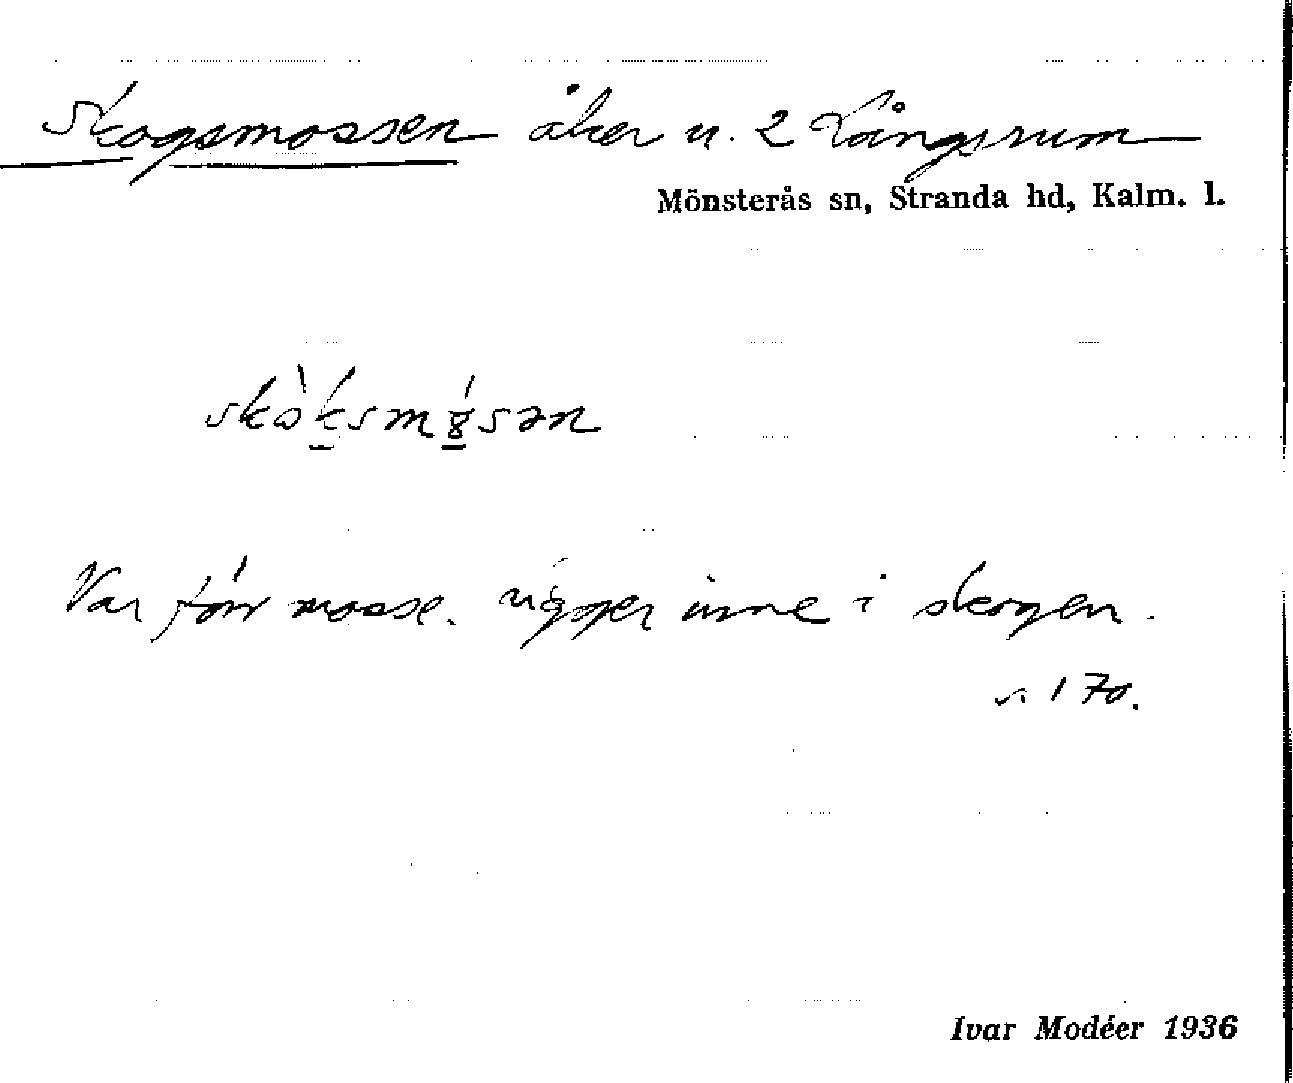 Skogsmossen åker u. 2 Långsrum
Mönsterås sn, Stranda hd, Kalm. l.
Var förr mosse. ligger inne i skogen.
s. 170.
Ivar Modéer 1936